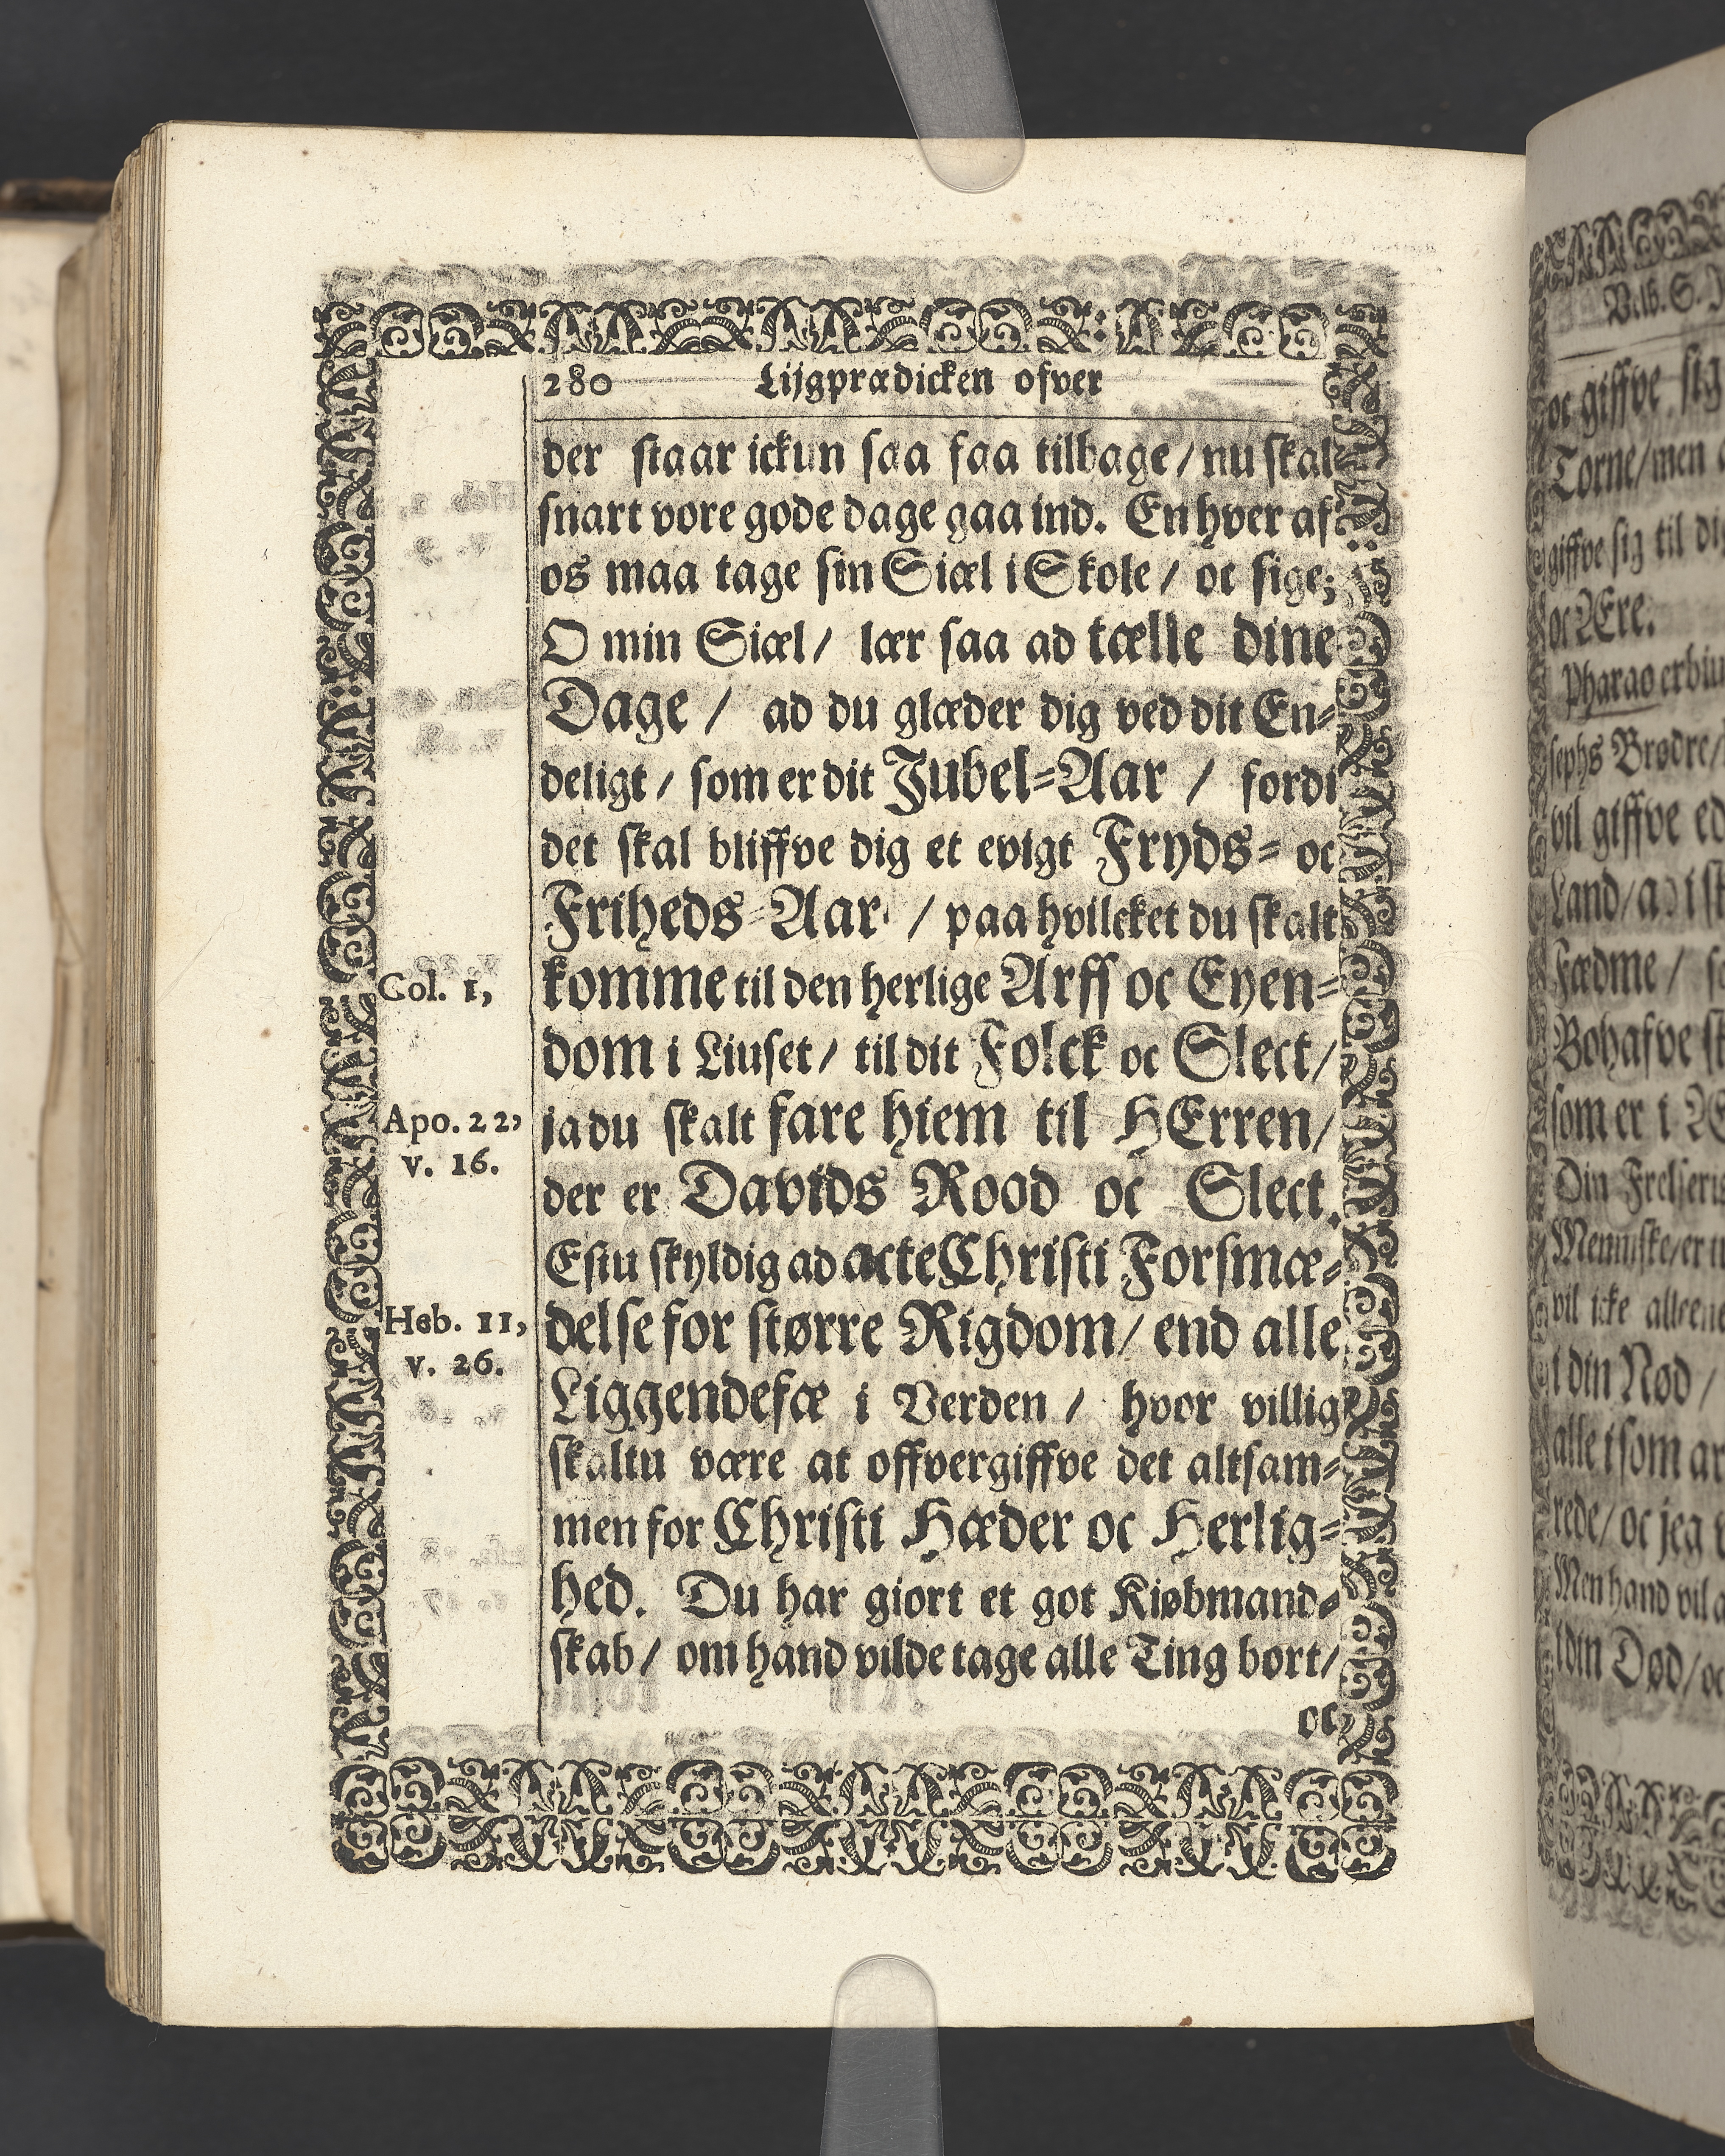 280 Lijgprædicken ofver
der staar ickun saa faa tilbage / nu skal
snart vore gode dage gaa ind. En hver af
os maa tage sin Siæl i Skole / oc sige;
O min Siæl / lær saa ad tælle dine
Dage / ad du glæder dig ved dit En-
deligt / som er dit Jubel-Aar / fordi
det skal bliffve dig et evigt Fryds- oc
Friheds-Aar / paa hvilcket du skalt
Col. 1,
komme til den herlige Arff oc Eyen-
dom i Liuset / til dit Folck oc Slect /
Apo. 22,
v. 16.
ja du skalt fare hiem til HErren /
der er Davids Rood oc Slect.
Estu skyldig ad acte Christi Forsmæ-
Heb. 11,
v. 26.
delse for større Rigdom / end alle
Liggendefæ i Verden / hvor villig
skaltu være at offvergiffve det altsam-
men for Christi Hæder oc Herlig-
hed. Du har giort et got Kiøbmand-
skab / om hand vilde tage alle Ting bort /
oc
Velb. S.
oc giffve sig
Torne / men
giffve sig til
oc Ære.
Pharao
sephs Brødre /
vil giffve
Land /
Fædme /
Bohafve
som er i
Din
Menniske / er
vil icke
i din Nød /
alle
rede / oc jeg
Men hand vil
i din Død / oc